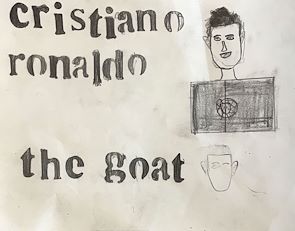 cristiano
ronaldo
the goat